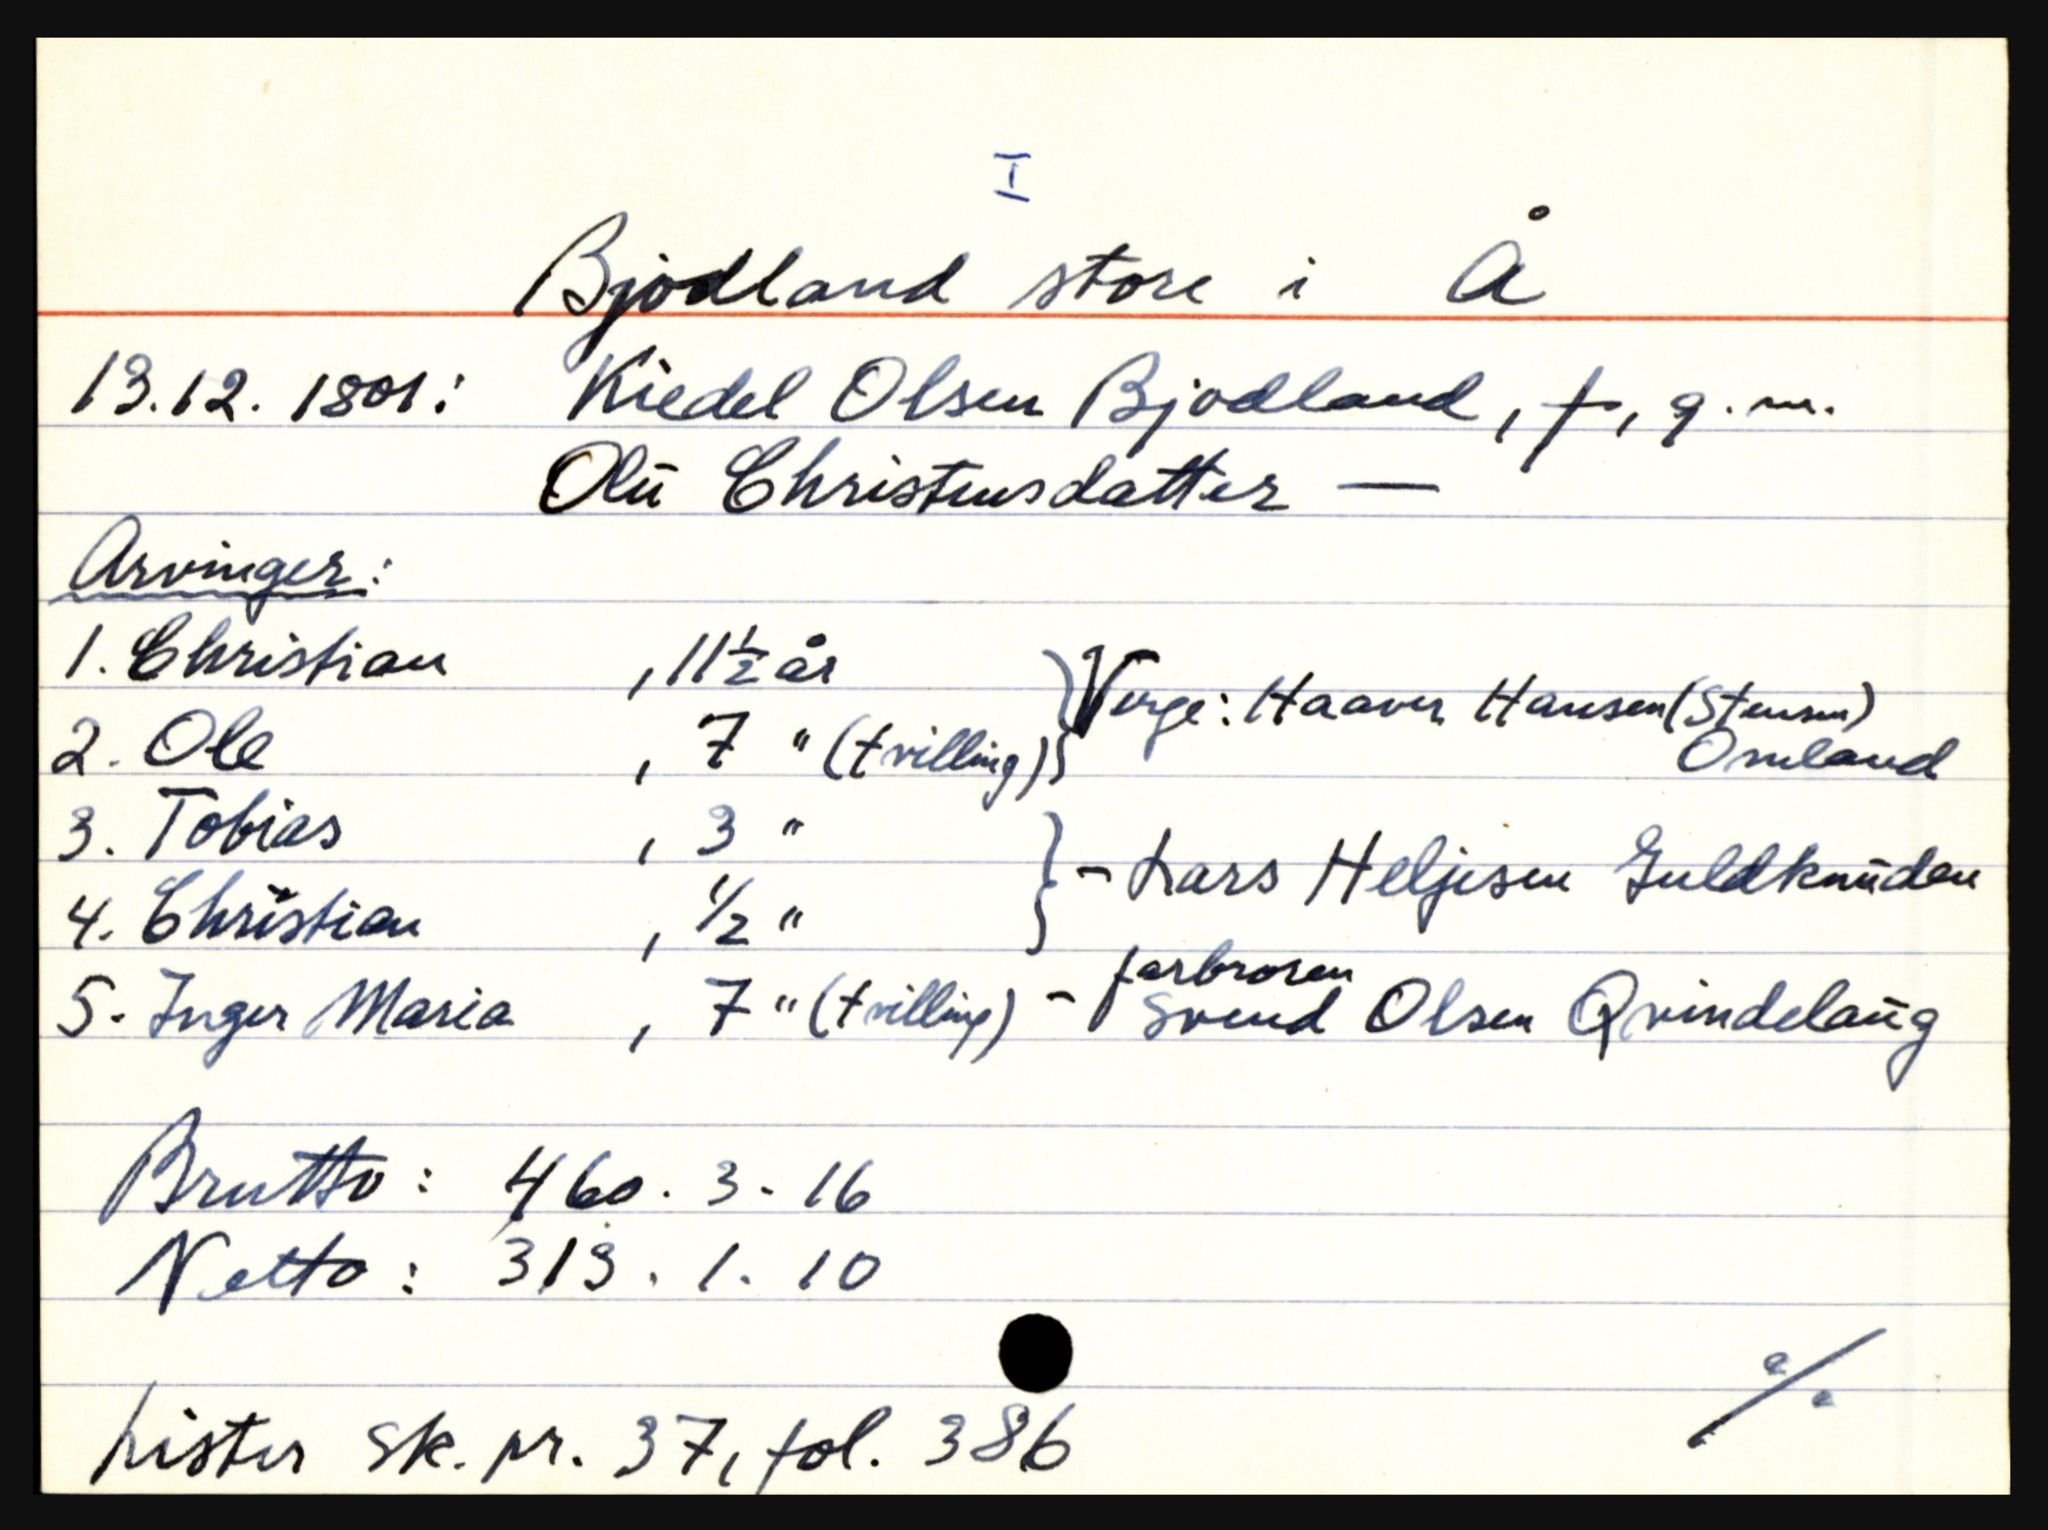 I
Bjodland store i Å
13.12. 1801: Kiedel Olsen Bjodland, f, g. m.
Olū Christensdatter —
Arvinger:
1. Christian , 11½ år } Verge: Haaver Hansen (Stensen)
2. Ole , 7 " (tvilling) } Omland
3. Tobias , 3 "
4. Christian , ½ " } - Lars Heljesen Guldknūden
farbroren
5. Inger Maria , 7 " (tvilling) - Svend Olsen Qvindelaūg
Brutto: 460. 3. 16
Netto: 313. 1. 10
Lister sk. pr. 37, fol. 386
%